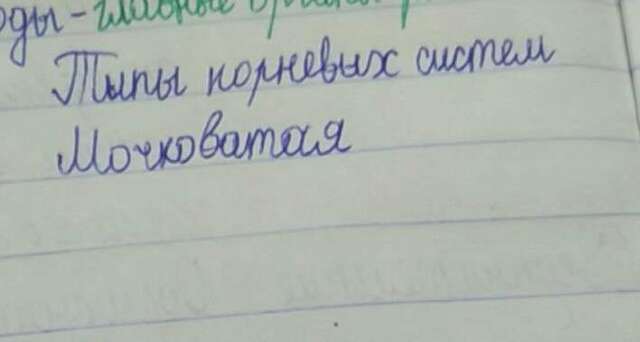 оды - главные
Типы корневых систем
Мочковатая